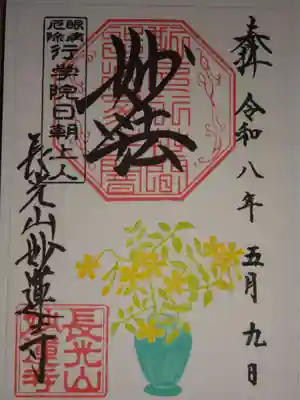 奉拝
令和八年
五月九日
妙法
眼病
厄除
行学院日朝上人
長光山妙蓮寺
長光山
妙蓮寺